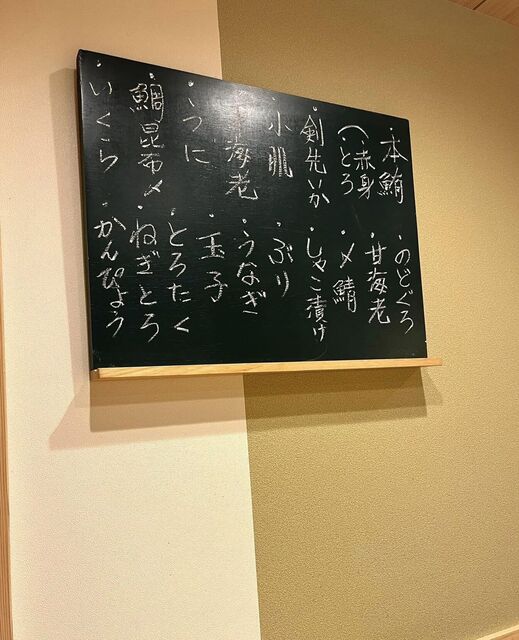 ・本鮪
(・赤身
・とろ
・剣先いか
・小肌
海老
・うに
・鯛昆布〆
・いくら
・のどぐろ
・甘海老
・〆鯖
・しゃこ漬け
・ぶり
・うなぎ
・玉子
・とろたく
・ねぎとろ
・かんぴょう